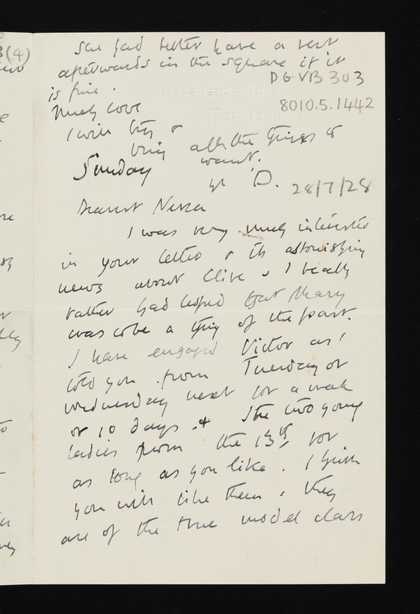 she had better have a rest
afterwards in the square if it
DG VB 303
is fine.
Much love
8010.5.1442
I will try &
bring all the things to
Sunday want.
yr D.
28/7/28
Dearest Nessa
I was very much interested
in your letter & its astonishing
news about Clive & I really
rather had hoped that Mary
was to be a thing of the past.
I have engaged Victor as I
told you from Tuesday or
Wednesday next for a week
or 10 days & the two young
ladies from the 13th, for
as long as you like. I think
you will like them, they
are of the true model class